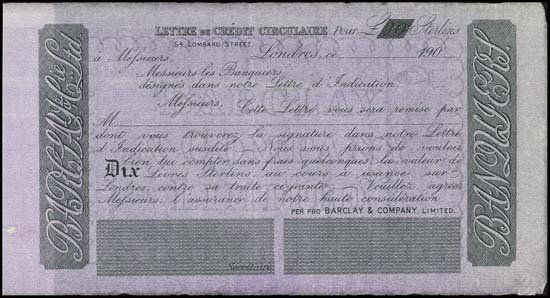 LETTRE DE CRÉDIT CIRCULAIRE Pour £10 Sterlins
54, LOMBARD STREET,
Londres, ce 190
à Messieurs,
Messieurs les Banquiers
désignés dans notre Lettre d'Indication.
Messieurs, Cette Lettre vous sera remise par
M
dont vous trouverez la signature dans notre Lettre
d'Indication susdite. Nous vous prions de vouloir
bien lui compter sans frais quelconques, la valeur de
Dix Livres Sterlins, au cours à usance sur
Londres, contre sa traite ci-jointe. Veuillez agréer
Messieurs, l'assurance de notre haute considération
PER PRO BARCLAY & COMPANY, LIMITED.
Secrétaire
BARCLAY & Cie Ltd.
BANQUIERS